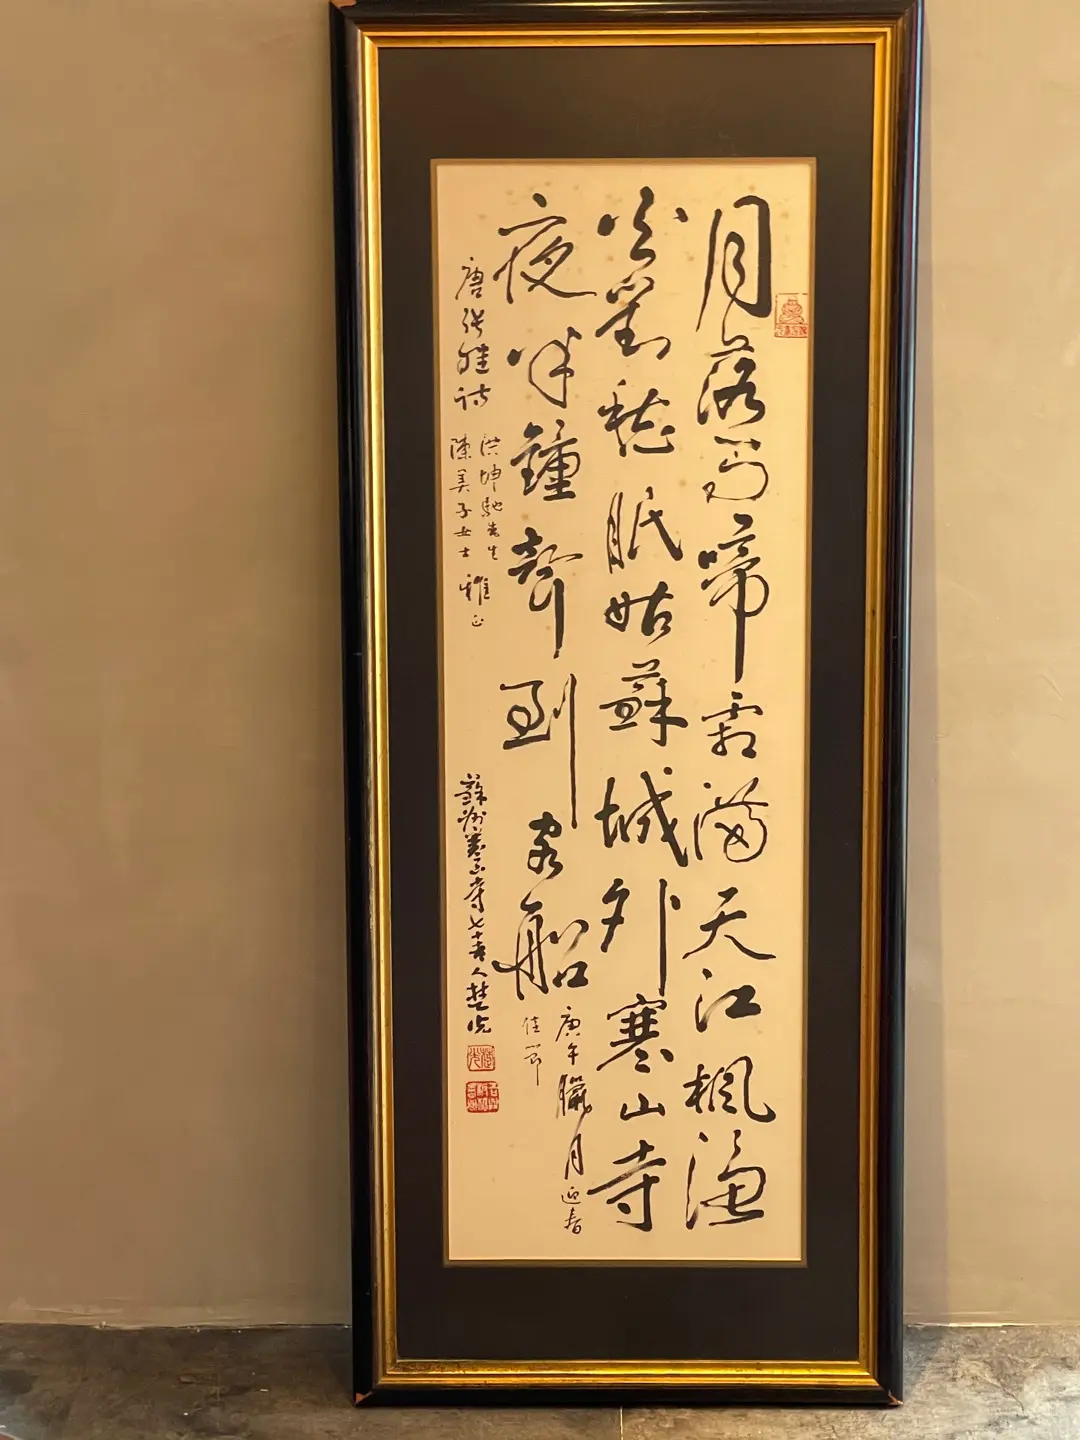 月落烏啼霜滿天江楓漁
火對愁眠姑蘇城外寒山寺
夜半鐘聲到客船
庚午臘月迎春
佳節
唐張繼詩
洪坤馳先生
陳美子女士雅正
蘇州寒山寺七十老人楚光